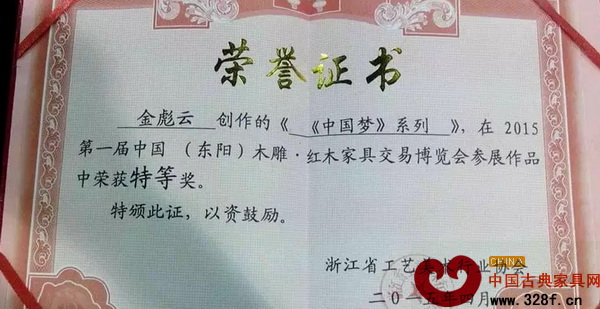 荣誉证书
金彪云 创作的《 《中国梦》系列 》，在 2015
第一届中国 （东阳）木雕·红木家具交易博览会参展作品
中荣获特等奖。
特颁此证，以资鼓励。
浙江省工艺美术行业协会
CHINA
中国古典家具网
二〇一五年四月
www.328f.cn